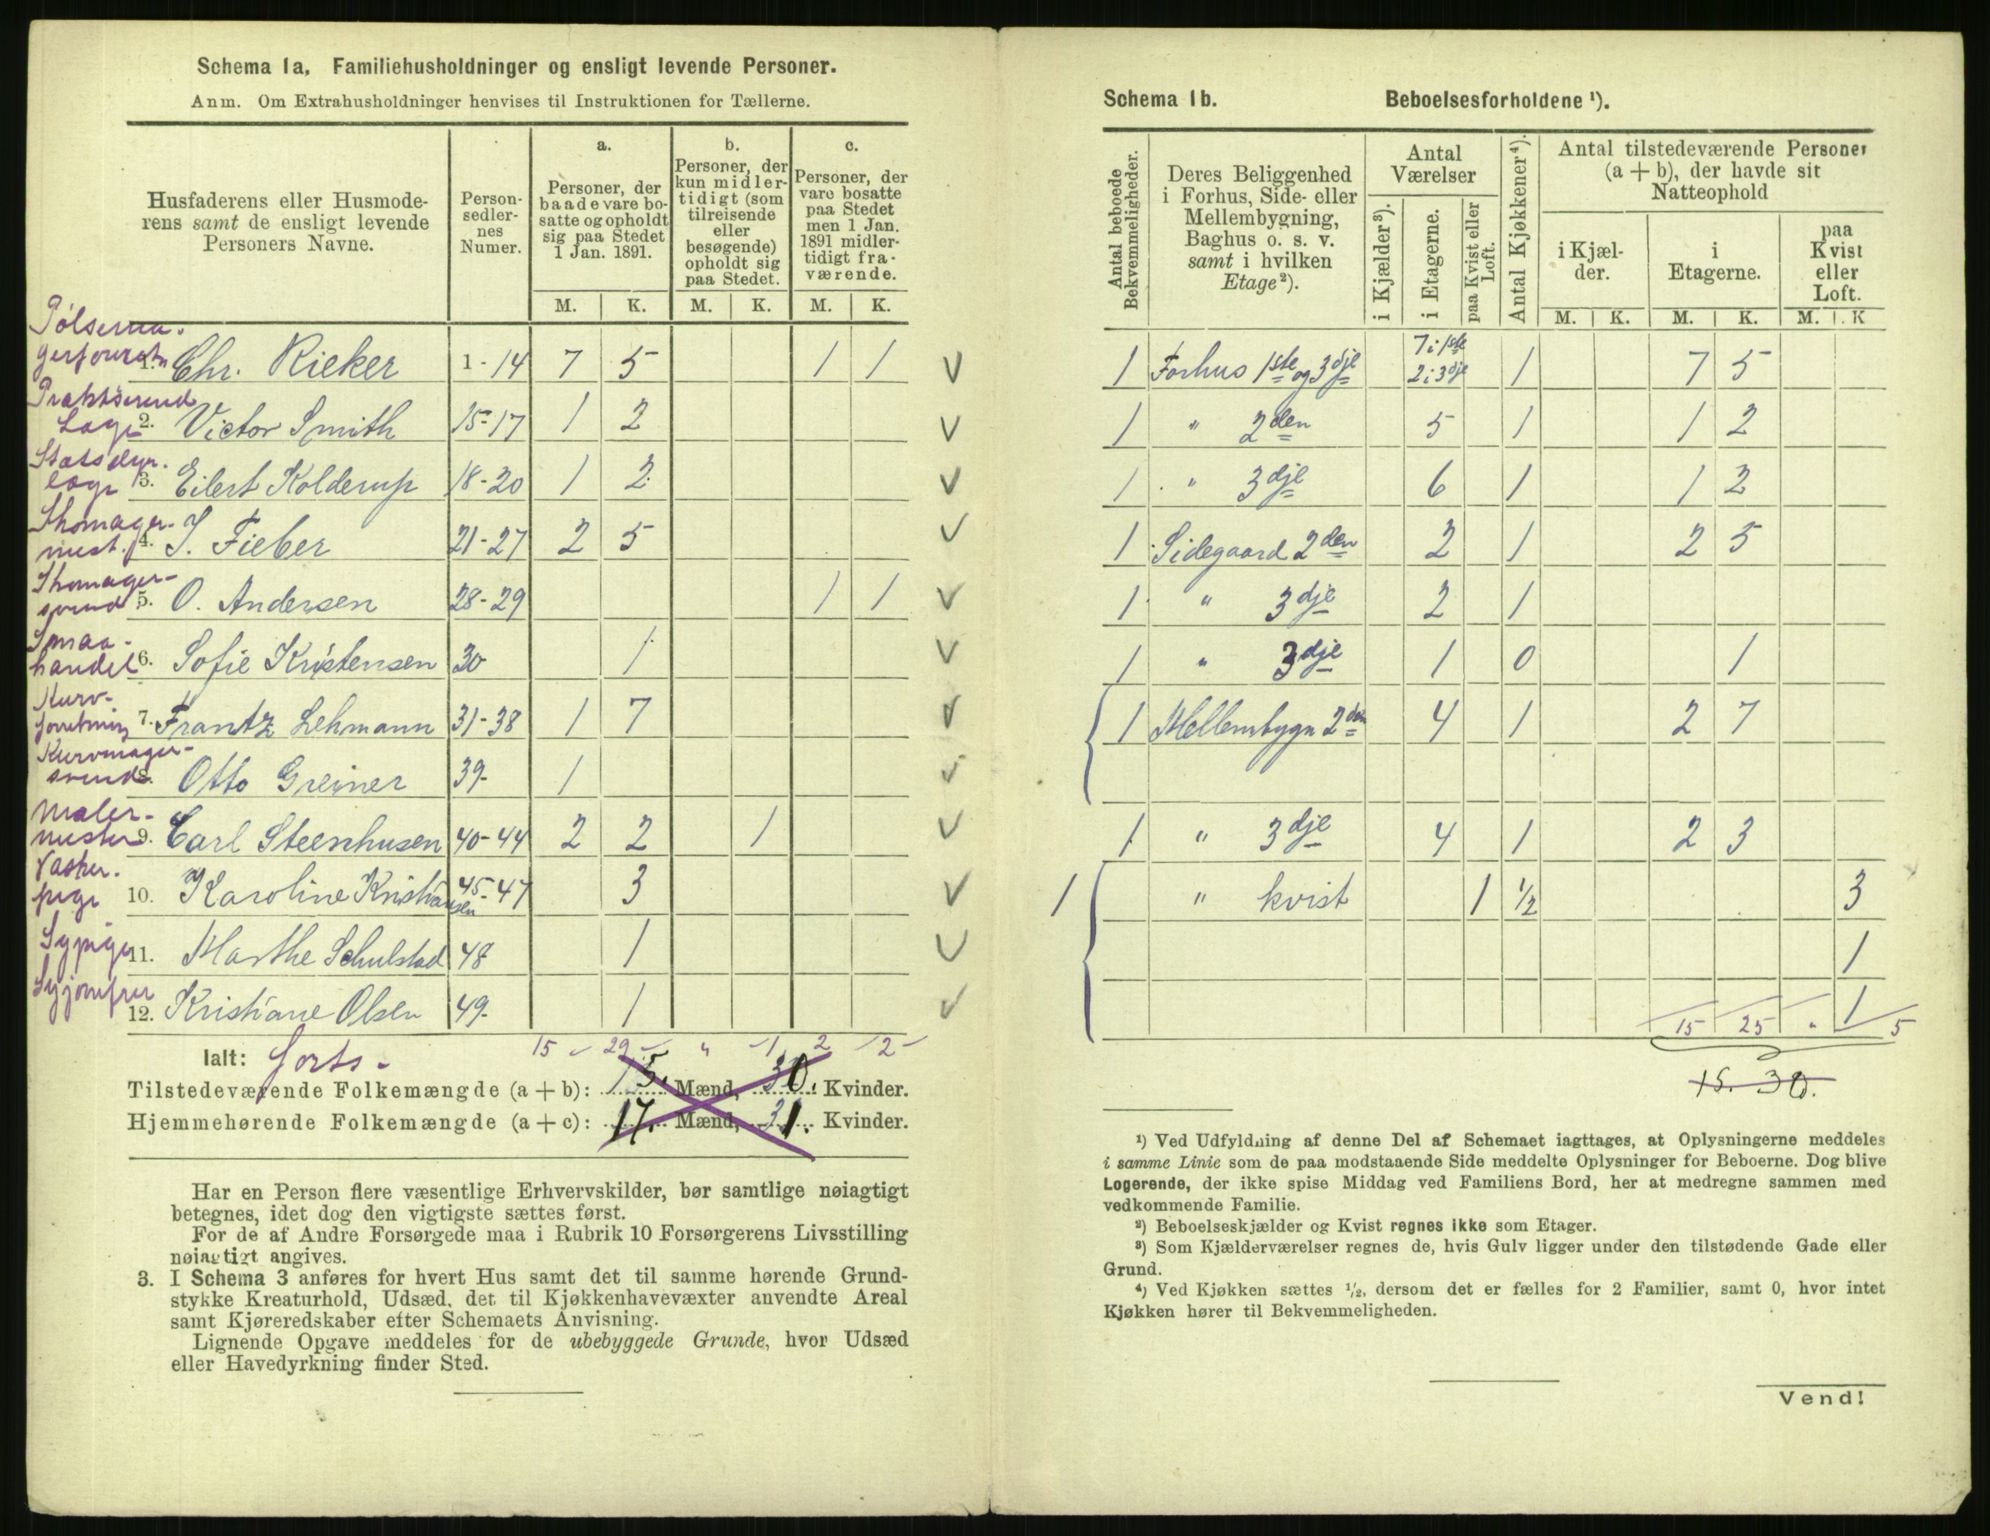 Schema 1a. Familiehusholdninger og ensligt levende Personer.
Anm. Om Extrahusholdninger henvises til Instruktionen for Tællerne.
Husfaderens eller Husmoderens samt de ensligt levende Personers Navne.
Personsedlernes Numer.
a. Personer, der baade vare bosatte og opholdt sig paa Stedet 1 Jan. 1891.
b. Personer, der kun midlertidigt (som tilreisende eller besøgende) opholdt sig paa Stedet.
c. Personer, der vare bosatte paa Stedet men 1 Jan. 1891 midlertidigt fraværende.
M. K. M. K. M. K.
Pølsema-
gerforretn 1. Chr. Rieker 1-14 7 5 1 1
Praktiserend
Læge 2. Victor Smith 15-17 1 2
Statsdyr-
læge 3. Eilert Kolderup 18-20 1 2
Skomager-
mest. 4. J. Fieber 21-27 2 5
Skomager-
svend 5. O. Andersen 28-29 1 1
Smaa-
handel 6. Sofie Kristensen 30 1
Kurv-
forretning 7. Frantz Lehmann 31-38 1 7
Kurvmager-
svend 8. Otto Greiner 39- 1
Maler-
mester 9. Carl Steenhusen 40-44 2 2 1
Vasker-
pige 10. Karoline Kristiansen 45-47 3
Sypige 11. Marthe Schulstad 48 1
Syjomfru 12. Kristiane Olsen 49- 1
Ialt: Forts- 15 - 29 - " - 1 2 2 -
Tilstedeværende Folkemængde (a + b): 15. Mænd, 30. Kvinder.
Hjemmehørende Folkemængde (a + c): 17. Mænd, 31. Kvinder.
Har en Person flere væsentlige Erhvervskilder, bør samtlige nøiagtigt
betegnes, idet dog den vigtigste sættes først.
For de af Andre Forsørgede maa i Rubrik 10 Forsørgerens Livsstilling
nøiagtigt angives.
3. I Schema 3 anføres for hvert Hus samt det til samme hørende Grund-
stykke Kreaturhold, Udsæd, det til Kjøkkenhavevæxter anvendte Areal
samt Kjøreredskaber efter Schemaets Anvisning.
Lignende Opgave meddeles for de ubebyggede Grunde, hvor Udsæd
eller Havedyrkning finder Sted.
Schema 1b. Beboelsesforholdene ¹).
Antal beboede Bekvemmeligheder.
Deres Beliggenhed i Forhus, Side- eller Mellembygning, Baghus o. s. v. samt i hvilken Etage ²).
Antal Værelser
i Kjælder ³).
i Etagerne.
paa Kvist eller Loft.
Antal Kjøkkener ⁴).
Antal tilstedeværende Personer (a + b), der havde sit Natteophold
i Kjælder.
i Etagerne.
paa Kvist eller Loft.
M. K. M. K. M. K
1 Forhus 1ste og 3dje 7 i 1ste 2 i 3dje 1 7 5
1 " 2den 5 1 1 2
1 " 3dje 6 1 1 2
1 Sidegaard 2den 2 1 2 5
1 " 3dje 2 1
1 " 3dje 1 0 1
1 Mellembygn 2den 4 1 2 7
1 " 3dje 4 1 2 3
1 " kvist 1 1/2 3
1
1
15 25 " 5
15. 30.
¹) Ved Udfyldning af denne Del af Schemaet iagttages, at Oplysningerne meddeles
i samme Linie som de paa modstaaende Side meddelte Oplysninger for Beboerne. Dog blive
Logerende, der ikke spise Middag ved Familiens Bord, her at medregne sammen med
vedkommende Familie.
²) Beboelseskjælder og Kvist regnes ikke som Etager.
³) Som Kjælderværelser regnes de, hvis Gulv ligger under den tilstødende Gade eller
Grund.
⁴) Ved Kjøkken sættes ½, dersom det er fælles for 2 Familier, samt 0, hvor intet
Kjøkken hører til Bekvemmeligheden.
Vend!